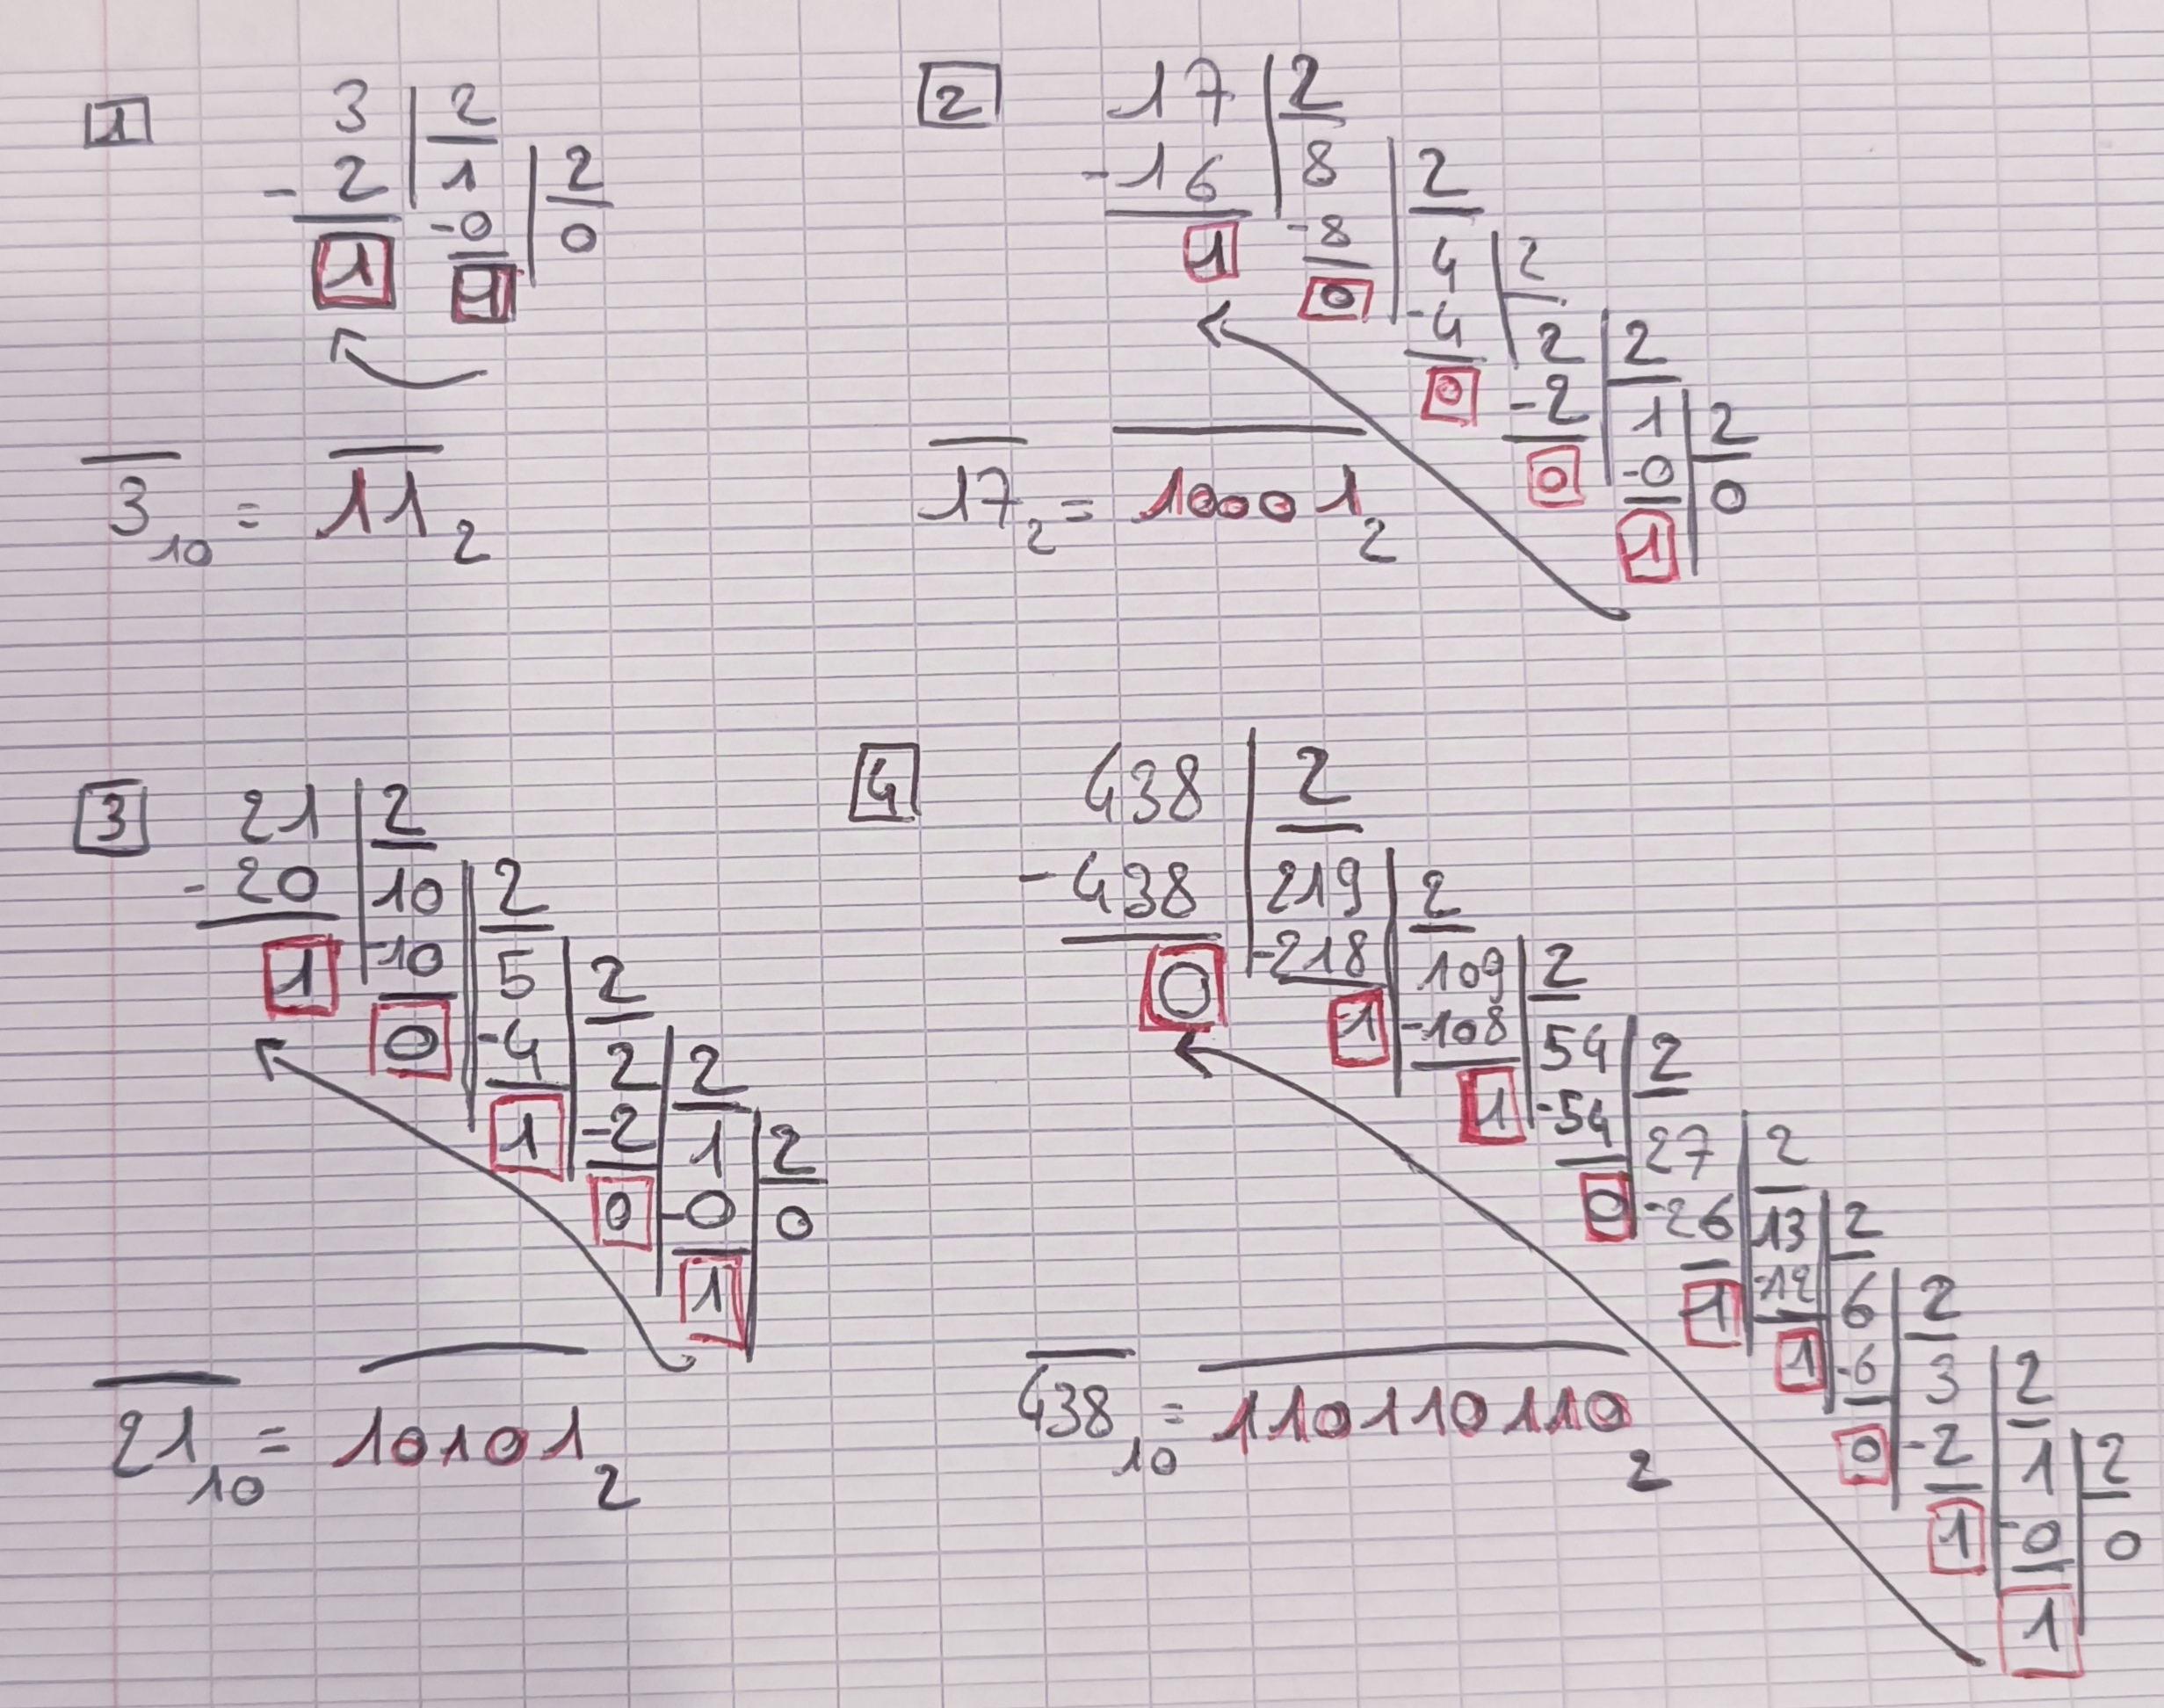 1
3 2
- 2 1 2
1 -0 0
1
3 10 = 11 2
2
17 2
-16 8 2
1 -8 4 2
0 -4 2 2
0 -2 1 2
0 -0 0
1
17 2 = 10001 2
3
21 2
- 20 10 2
1 -10 5 2
0 -4 2 2
1 -2 1 2
0 -0 0
1
21 10 = 10101 2
4
438 2
- 438 219 2
0 -218 109 2
1 -108 54 2
1 -54 27 2
0 -26 13 2
1 -12 6 2
1 -6 3 2
0 -2 1 2
1 -0 0
1
438 10 = 110110110 2